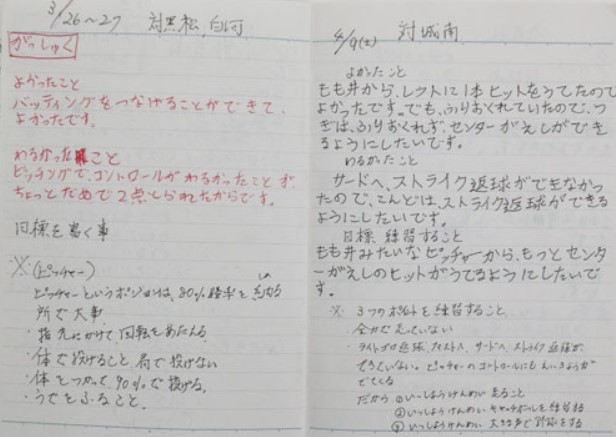 3/26〜27 対黒松、白河
がっしゅく
よかったこと
バッティングをつなげることができて、
よかったです。
わるかったこと
ピッチングで、コントロールがわるかったことが、
ちょっとだめで2点とられたからです。
目標を書く事
※(ピッチャー)
ピッチャーというポジションは、80%確率を
所で大事
・指先にかけて回転をあたえる
・体で投げること、肩で投げない
・体をつかって、90%で投げる。
・うでをふること。
4/9(土) 対城南
よかたこと
もも井から、レフトに1本ヒットをうてたので
よかったです。でも、ふりおくれていたので、つ
ぎは、ふりおくれず、センターがえしができ
るようにしたいです。
わるかたこと
サードへ、ストライク返球ができなかっ
たので、こんどは、ストライク返球ができる
ようにしたいです。
目標、練習すること
もも井みたいなピッチャーから、もっとセンタ
ーがえしのヒットがうてるようにしたいで
す。
※ 3つのポイントを練習すること。
・全力で走っていない
・ライトゴロ返球、サードへ、ストライク返球が、
できていない。ピッチャーのコントロールにもえいきょうが
でてくる
だから ①いっしょうけんめい走ること
②いっしょうけんめいキャッチボールを練習する
③いっしょうけんめい大きな声で野球をする